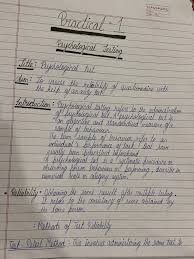 Practical - 1
Psychological Testing
Title: Psychological test.
Aim: To assess the reliability of questionnaire with
the help of security test.
Introduction: Psychological testing refers to the administration
of psychological test. A psychological test is
an objective and standardized measure of a
sample of behaviour.
The term sample of behaviour refers to an
individual's performance of task that have
usually been prescribed beforehand.
A psychological test is a systematic procedure for
observing behaviour, describing in
numerical scale or category system.
Reliability: Obtaining the same result after multiple testing.
It refers to the consistency of scores obtained by
the same person
Methods of Test Reliability
Test-Retest Method: This involves administering the same test to